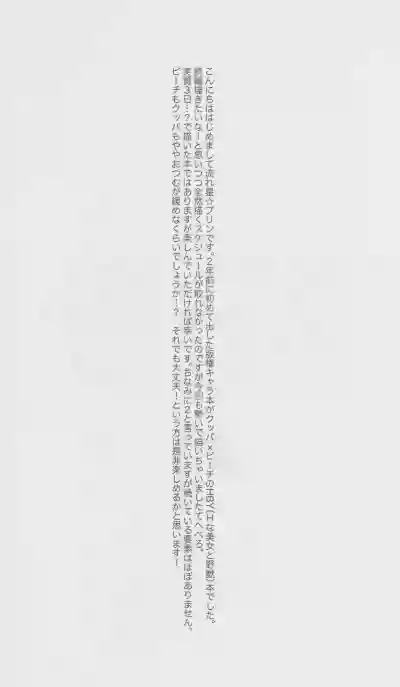 こんにちははじめまして流れ星☆プリンです。2年前に初めて出した版権キャラ本がクッパ×ピーチのHBY(Hな美女と野獣)本でした。
続編描きたいなーと思いつつ全然描くスケジュールが取れなかったのですが今回も勢いで描いちゃいましたてへぺろ。
実質3日…?で描いた本ではありますが楽しんでいただければ幸いです。ちなみに2と言っていますが続いている要素はほぼありません。
ピーチもクッパもややおつむが緩めなくらいでしょうか…? それでも大丈夫!という方は是非楽しめるかと思います!